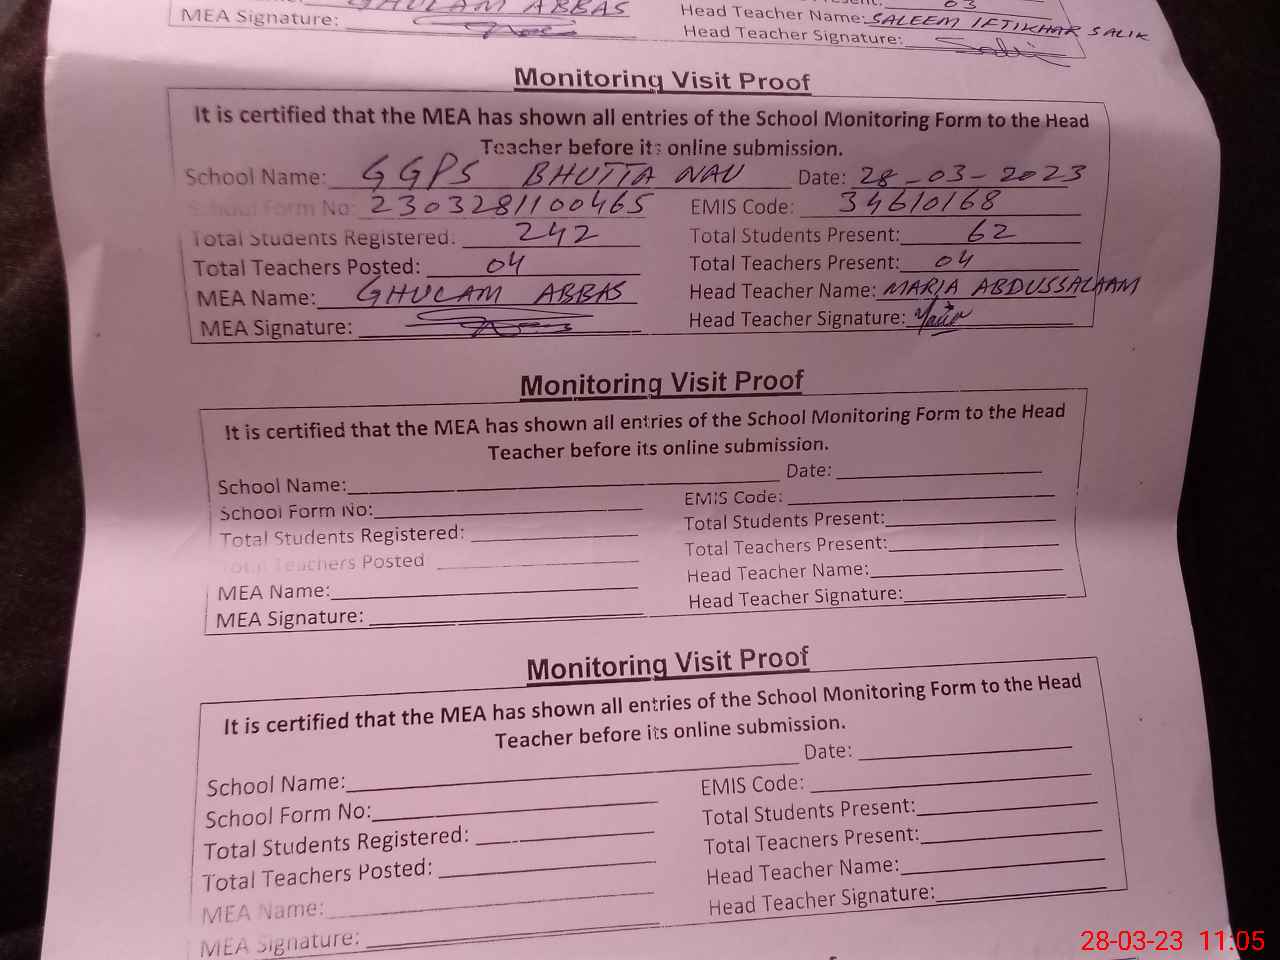 GHULAM ABBAS 03
MEA Signature: Head Teacher Name: SALEEM IFTIKHAR SALIK
Head Teacher Signature:
Monitoring Visit Proof
It is certified that the MEA has shown all entries of the School Monitoring Form to the Head
Teacher before its online submission.
School Name: GGPS BHUTTA NAU Date: 28-03-2023
School Form No: 2303281100465 EMIS Code: 34610168
Total Students Registered: 242 Total Students Present: 62
Total Teachers Posted: 04 Total Teachers Present: 04
MEA Name: GHULAM ABBAS Head Teacher Name: MARIA ABDUSSALAAM
MEA Signature: Head Teacher Signature:
Monitoring Visit Proof
It is certified that the MEA has shown all entries of the School Monitoring Form to the Head
Teacher before its online submission.
School Name: Date:
School Form No: EMIS Code:
Total Students Registered: Total Students Present:
Total Teachers Posted Total Teachers Present:
MEA Name: Head Teacher Name:
MEA Signature: Head Teacher Signature:
Monitoring Visit Proof
It is certified that the MEA has shown all entries of the School Monitoring Form to the Head
Teacher before its online submission.
School Name: Date:
School Form No: EMIS Code:
Total Students Registered: Total Students Present:
Total Teachers Posted: Total Teachers Present:
MEA Name: Head Teacher Name:
MEA Signature: Head Teacher Signature:
28-03-23 11:05